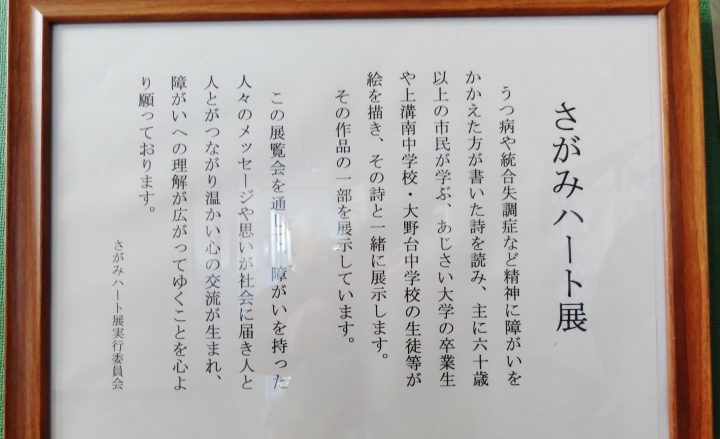 さがみハート展
うつ病や統合失調症など精神に障がいを
かかえた方が書いた詩を読み、主に六十歳
以上の市民が学ぶ、あじさい大学の卒業生
や上溝南中学校・大野台中学校の生徒等が
絵を描き、その詩と一緒に展示します。
その作品の一部を展示しています。
この展覧会を通し 障がいを持った
人々のメッセージや思いが社会に届き人と
人とがつながり温かい心の交流が生まれ、
障がいへの理解が広がってゆくことを心よ
り願っております。
さがみハート展実行委員会